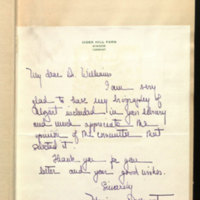 My dear Dr. Williams
I am very
glad to have my biography of
Mozart included in your library
and much appreciate the
opinion of the committee that
selected it.
Thank you for your
letter and your good wishes.
Sincerely